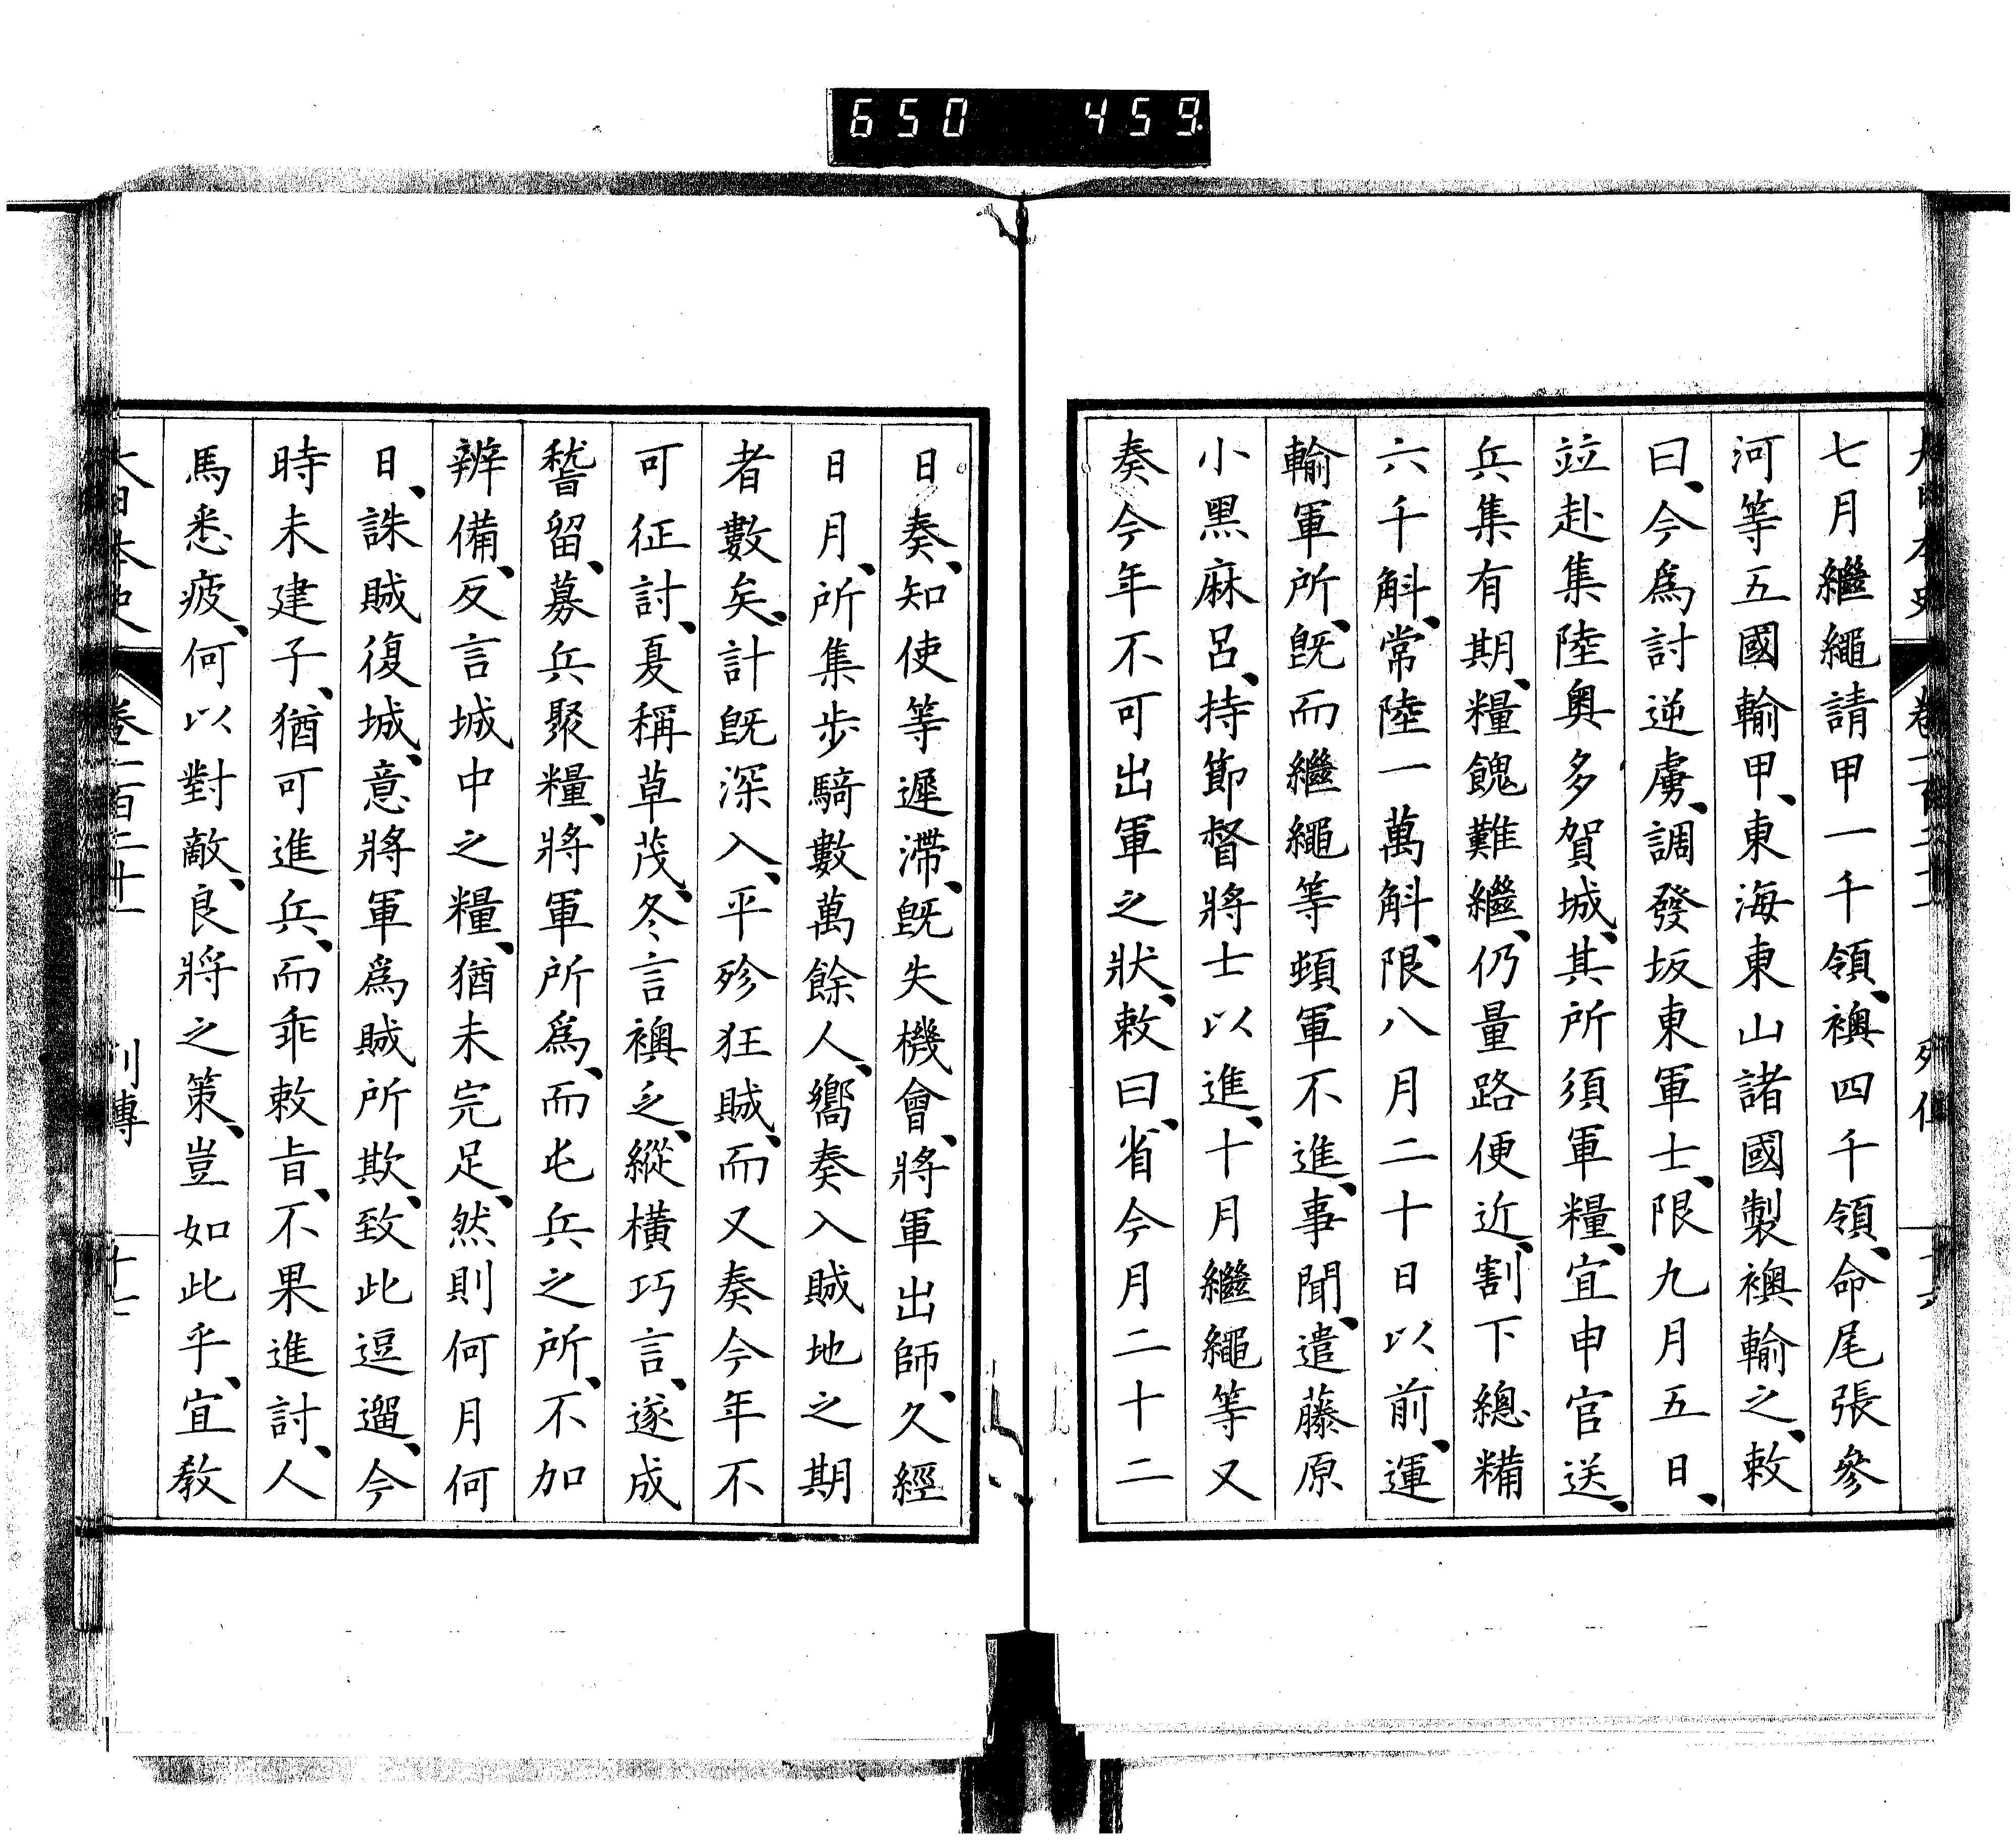 650 459
七月繼繩請甲一千領、襖四千領、命尾張參
河等五國輸甲、東海東山諸國製襖輸之、敕
曰、今爲討逆虜、調發坂東軍士、限九月五日、
竝赴集陸奥多賀城、其所須軍糧、宜申官送、
兵集有期、糧餽難繼、仍量路便近、割下總糒
六千斛、常陸一萬斛、限八月二十日以前、運
輸軍所、旣而繼繩等頓軍不進、事聞、遣藤原
小黑麻呂、持節督將士以進、十月繼繩等又
奏今年不可出軍之狀、敕曰、省今月二十二
日奏、知使等遲滯、旣失機會、將軍出師、久經
日月、所集步騎數萬餘人、嚮奏入賊地之期
者數矣、計旣深入、平殄狂賊、而又奏今年不
可征討、夏稱草茂、冬言襖乏、縱橫巧言、遂成
稽留、募兵聚糧、將軍所爲、而屯兵之所、不加
辨備、反言城中之糧、猶未完足、然則何月何
日、誅賊復城、意將軍爲賊所欺、致此逗遛、今
時未建子、猶可進兵、而乖敕旨、不果進討、人
馬悉疲、何以對敵、良將之策、豈如此乎、宜敎